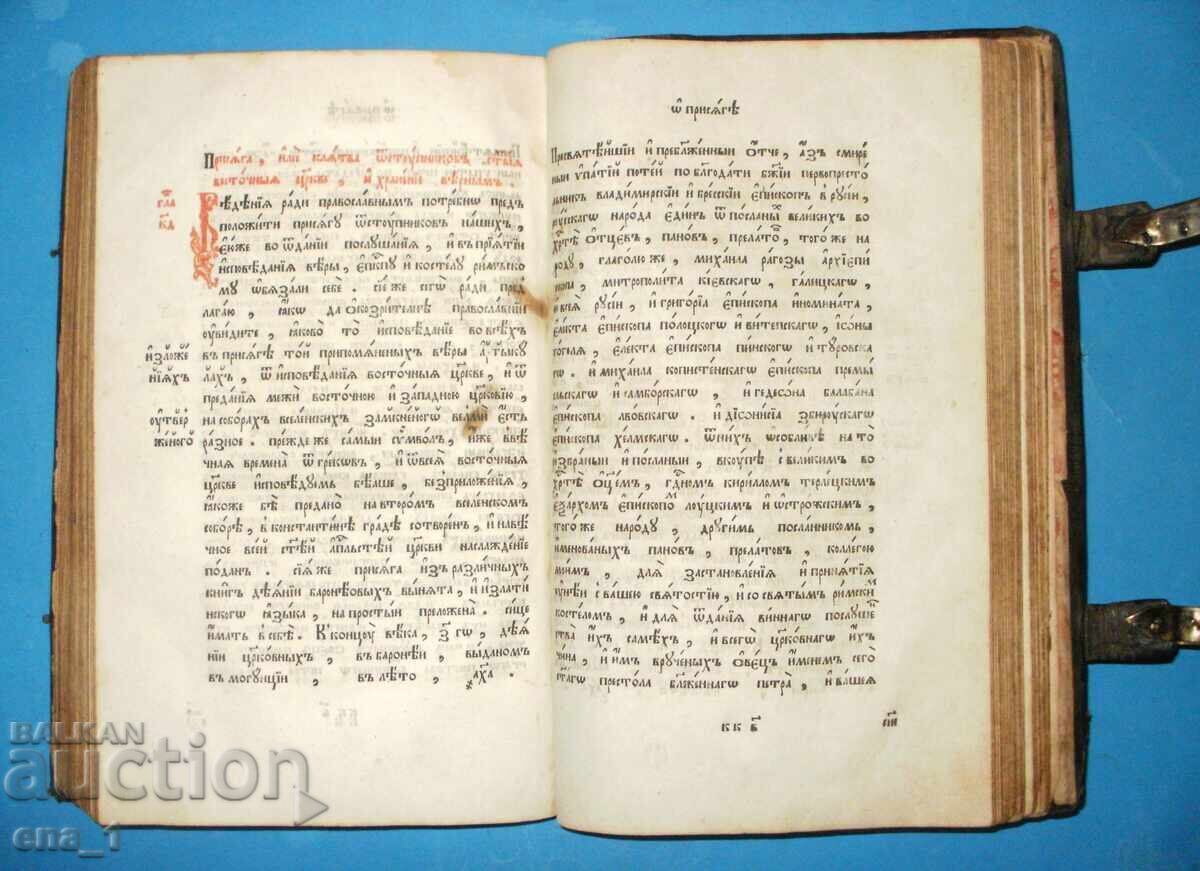 Присѧга , илѝ клѧтва ѿстꙋпников, ст҃ыѧ
восточныѧ цр҃кве , и҆ хр҃анїи вѣрнаѧ .
гла
к҃д
Вѣдѣнїѧ ради православнымъ потребно предъ
положити присѧгу ѿстоупниковъ нашихъ ,
е҆юже во ѿданїи послушанїѧ , и҆ въ прїѧтїи
и҆сповѣданїѧ вѣры , е҆пⷭ҇кпу и҆ костелу римъско
му ѡ҆бѧзали себе . сїе же сегѡ̀ ради пред
лагаю , ꙗ҆кѡ да ѡ҆козрителнѣ православнїи
оу҆видите , ꙗ҆ково то и҆сповѣданїе во всѣхъ
и҆зложе
нїѧхъ
въ присѧгѣ той припомѧненныхъ вѣры а҆ртыку
лахъ , ѿ и҆сповѣданїѧ восточныѧ цр҃кве , и҆ ѿ
преданїѧ межи восточною и҆ западною цр҃ковїю ,
оу҆твер
женого
на соборахъ вселенскихъ замкненогѡ велмѝ е҆сть
разное . прежде же самыи сѷмволъ , и҆же въвѣ
чнаѧ времена ѿ грековъ , и҆ ѿ всеѧ восточныѧ
цр҃кве и҆сповѣдуемъ бѣаше , безприложенїѧ ,
ꙗ҆коже бѣ предано на второмъ вселенскомъ
соборѣ , в константинѣ градѣ сотворен , и҆ навѣ
чное всей ст҃ѣй а҆пⷭ҇льстѣй цр҃кви наслажденїе
поданъ . сїѧ же присѧга и҆зъ различныхъ
книгъ дѣѧнїи баронѣевыхъ вынѧта , и҆ и҆злати
нскогѡ ꙗ҆зыка , на простыи преложена . сице
и҆мать в себѣ . К концоу вѣка , з҃гѡ , дѣѧ
нїи цр҃ковныхъ , въ баронѣи , выданомъ
в могунцїи , въ лѣто , а҂ха .
ѡ҆ присѧгѣ
Пресвѧтѣйшїи и҆ преблаженныи ѻ҆тче , а҆зъ смире
ныи у҆патїи потѣй по благодати бж҃їи первопресто
лникъ владимирскїи и҆ брескїи е҆пископъ в руси ,
рꙋскагѡ народа е҆динъ ѿ посланыхъ великихъ во
хр҃тѣ ѻ҆тцевъ , пановъ , прелатовъ , того же на
роду , глаголю же , михаила рагозы а҆рхїепи
скопа , митрополита кїевскагѡ , галицкагѡ ,
и҆ всеѧ русїи , и҆ григорїѧ е҆пископа и҆номината ,
е҆лекта е҆пископа полоцкогѡ и҆ витепскагѡ , і҆ѡны
гоголѧ , е҆лекта е҆пископа пинскогѡ и҆ туровска
гѡ . и҆ михаила копистенскагѡ е҆пископа премы
шлскагѡ и҆ самборскагѡ , и҆ гедеѡна балабана
е҆пископа лвовскагѡ . и҆ дїѡнисїа збируйскагѡ
е҆пископа хелмскагѡ . ѿнихъ ѡ҆собливѣ на то
и҆збраныи и҆ посланыи , вкоупѣ с великимъ во
хр҃тѣ ѻ҆ц҃емъ , гдⷭ҇номъ кирилломъ терлецкимъ
е҆ѯархомъ е҆пископомъ лоуцкимъ и҆ ѡ҆строжскимъ ,
того же народу , другимъ посланникомъ ,
и҆менованыхъ пановъ , прелатовъ , коллегою
моимъ , длѧ застановленїѧ и҆ принѧтїѧ
оу҆нѣи с вашею свѧтостїю , и҆ со свѧтымъ римскимъ
костеломъ , и҆ длѧ ѿданїѧ виннагѡ послушен
ства и҆хъ самѣхъ , и҆ всегѡ цр҃ковнагѡ и҆хъ
чина , и҆ и҆мъ врученыхъ ѻ҆вецъ и҆менемъ сего
ст҃агѡ престола бл҃женнагѡ петра , и҆ вашеѧ
к к в҃
сїи
BALKAN
auction
ena_1